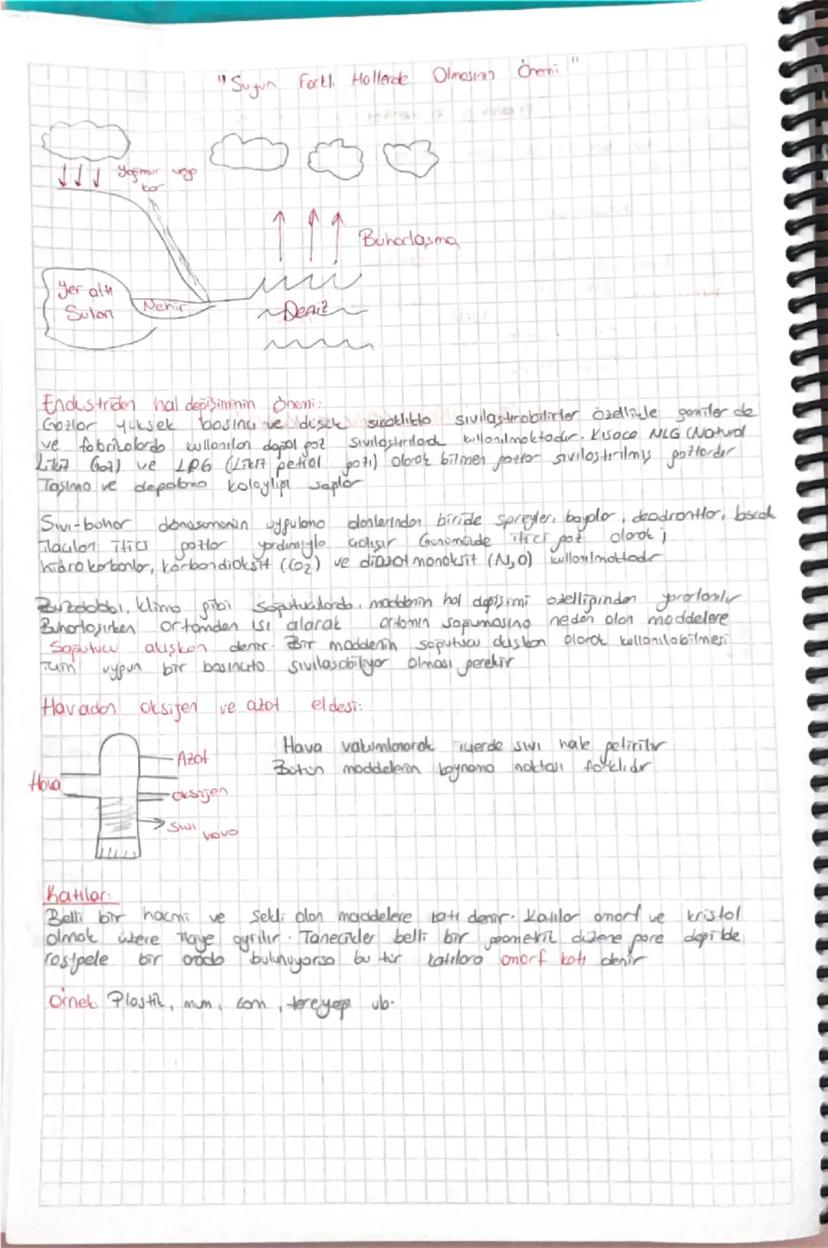 "Suyun Farklı Hallerde Olmasının Önemi"
Yağmur veya
kar
Buharlaşma
Yer altı
Suları
Nehir
Deniz
Endüstriden hal değişiminin önemi:
Gazlar yüksek basınç ve düşük sıcaklıkta sıvılaştırabilirler özellikle gemiler de
ve fabrikalarda kullanılan doğal gaz sıvılaştırılarak kullanılmaktadır. Kısaca NLG (Natural
Likit Gaz) ve LPG (Likit petrol gazı) olarak bilinen gazlar sıvılaştırılmış gazlardır
Taşıma ve depolama kolaylığı sağlar
Sıvı-buhar dönüşümünün uygulama alanlarından biride spreyler, boyalar, deodrantlar, böcek
ilaçları itici gazlar yardımıyla çalışır Günümüzde itici gaz olarak;
hidrokarbonlar, karbondioksit (CO2) ve diazotmonoksit (N2O) kullanılmaktadır
Buzdolabı, klima gibi soğutucularda, maddenin hal değişimi özelliğinden yararlanılır
Buharlaşırken ortamdan ısı alarak ortamın soğumasına neden olan maddelere
soğutucu akışkan denir. Bir maddenin soğutucu akışkan olarak kullanılabilmesi
için uygun bir basınçta sıvılaşabiliyor olması gerekir
Havadan oksijen ve azot eldesi:
Hava vakumlanarak içerde sıvı hale getirilir
Bütün maddelerin kaynama noktası farklıdır
Azot
Hava
oksijen
Sıvı hava
Katılar:
Belli bir hacmi ve şekli olan maddelere katı denir. Katılar amorf ve kristal
olmak üzere ikiye ayrılır. Tanecikler belli bir geometrik düzene göre değilde
rastgele bir arada bulunuyorsa bu tür katılara amorf katı denir
Örnek: Plastik, mum, cam, tereyağı vb.